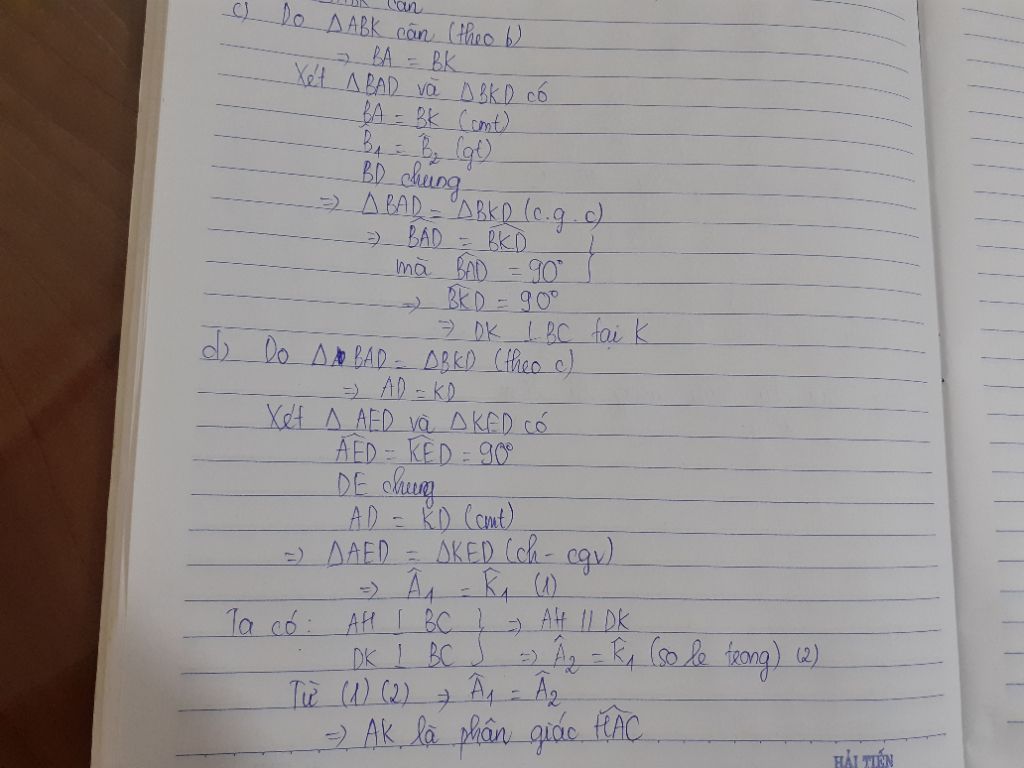 cân
c) Do ΔABK cân (theo b)
⇒ BA = BK
Xét ΔBAD và ΔBKD có
BA = BK (cmt)
B̂₁ = B̂₂ (gt)
BD chung
⇒ ΔBAD = ΔBKD (c.g.c)
⇒ B͡AD = B͡KD }
mà B͡AD = 90°
⇒ B͡KD = 90°
⇒ DK ⊥ BC tại K
d) Do Δ BAD = ΔBKD (theo c)
⇒ AD = KD
Xét Δ AED và ΔKED có
A͡ED = K͡ED = 90°
DE chung
AD = KD (cmt)
⇒ ΔAED = ΔKED (ch - cgv)
⇒ Â₁ = K̂₁ (1)
Ta có: AH ⊥ BC } ⇒ AH // DK
DK ⊥ BC } ⇒ Â₂ = K̂₁ (so le trong) (2)
Từ (1) (2) ⇒ Â₁ = Â₂
⇒ AK là phân giác H͡AC
HẢI TIẾN